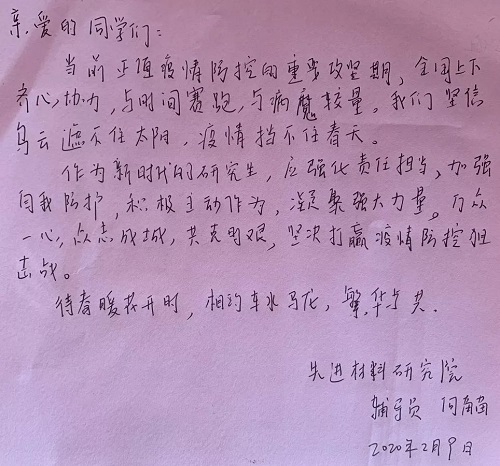 亲爱的同学们：
当前正值疫情防控的重要攻坚期，全国上下
齐心协力，与时间赛跑，与病魔较量。我们坚信
乌云遮不住太阳，疫情挡不住春天。
作为新时代的研究生，应强化责任担当，加强
自我防护，积极主动作为，凝聚强大力量。万众
一心，众志成城，共克时艰，坚决打赢疫情防控狙
击战。
待春暖花开时，相约车水马龙，繁华与共.
先进材料研究院
辅导员 何
2020年2月9日